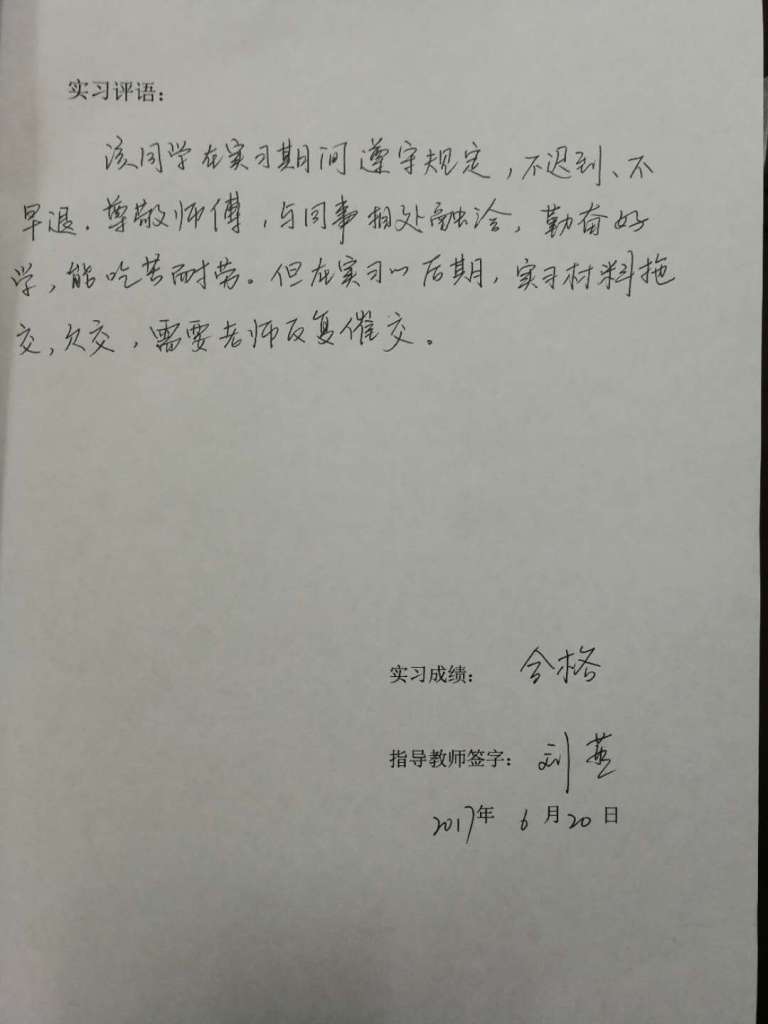 实习评语：
该同学在实习期间遵守规定，不迟到、不
早退．尊敬师傅，与同事相处融洽，勤奋好
学，能吃苦耐劳。但在实习的后期，实习材料拖
交，欠交，需要老师反复催交。
实习成绩： 合格
指导教师签字： 刘燕
2017年 6月20日